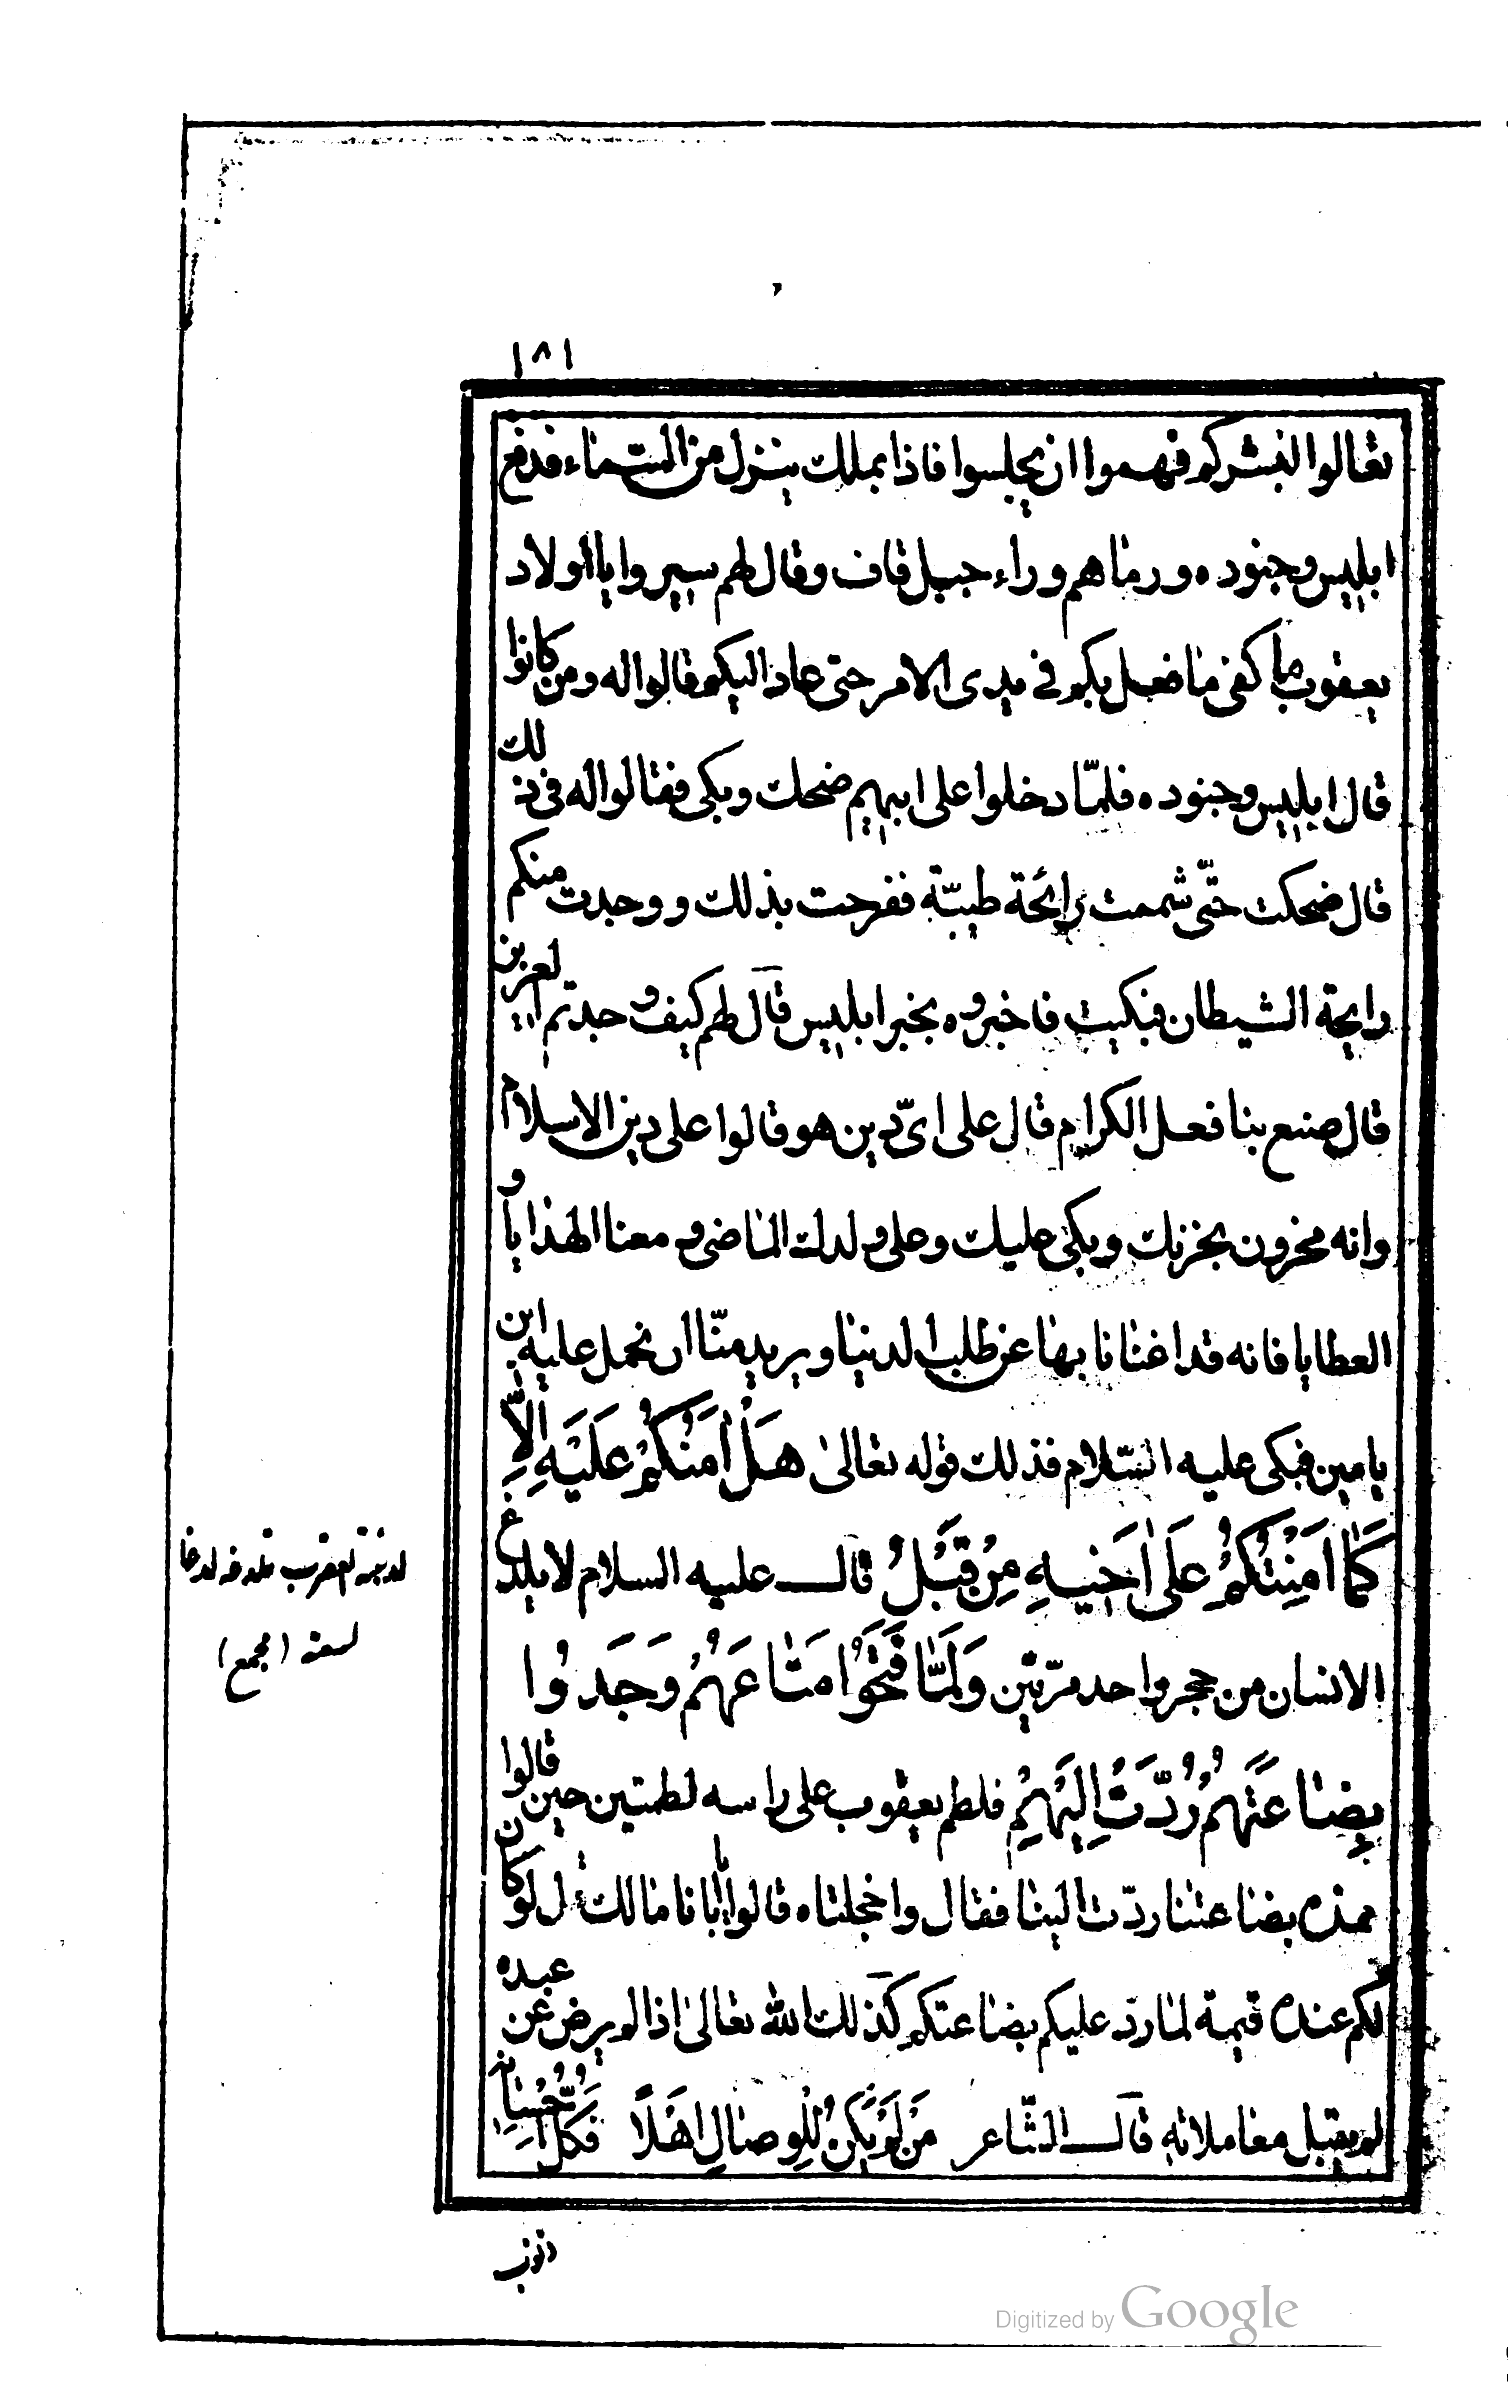 ١٨١
تعالوا لنبشركم فهموا ان يجلسوا فاذا بملك ينزل من السماء فدفع
ابليس وجنوده ورماهم وراء جبل قاف وقال لهم سيروا يا اولاد
يعقوب ما كفى ما فعل بكم في بدى الامر حتى عاد اليكم قالوا له ومن كانوا
قال ابليس وجنوده فلمّا دخلوا على ابيهم ضحك وبكى فقالوا له فى ذلك
قال ضحكت حتّى شممت رائحة طيبّة ففرحت بذلك ووجدت منكم
رايحة الشيطان فبكيت فاخبروه بخبر ابليس قال لهم كيف وجدتم العزيز
قال صنع بنا فعل الكرام قال على اىّ دين هو قالوا على دين الاسلام
وانه محزون بحزنك وبكى عليك وعلى ولدك الماضى ومعنا الهدايا و
العطايا فانه قد اغنانا بها عن طلب الدنيا ويريد منّا ان نحمل عليه ابن
يامين فبكى عليه السّلام فذلك قوله تعالى هَلْ اٰمَنُكُمْ عَلَيْهِ اِلاّٰ
كَمٰا اَمِنْتُكُمْ عَلىٰ اَخيهِ مِنْ قَبْلُ قال عليه السلام لا يلدغ
الانسان من حجر واحد مرّتين وَلَمّٰا فَتَحُوا مَتٰاعَهُمْ وَجَدُوا
بِضٰاعَتَهُمْ رُدَّتْ اِلَيْهِمْ فلطم يعقوب على راسه لطمتين حين قالوا
هذه بضاعتنا ردّت الينا فقال واخجلتاه قالوا يا ابانا مالك قال لو كان
لكم عنده قيمة لما ردّ عليكم بضاعتكم كذلك الله تعالى اذا لم يرض عن عبده
لم يقبل معاملاته قال الشّاعر مَنْ لَمْ يَكُنْ لِلْوِصٰالِ اَهْلًا فَكُلُّ اِحْسٰانِهِ
لدغته العقرب تلدغه لدغا
لسعته (مجمع)
ذنوب
Digitized by Google